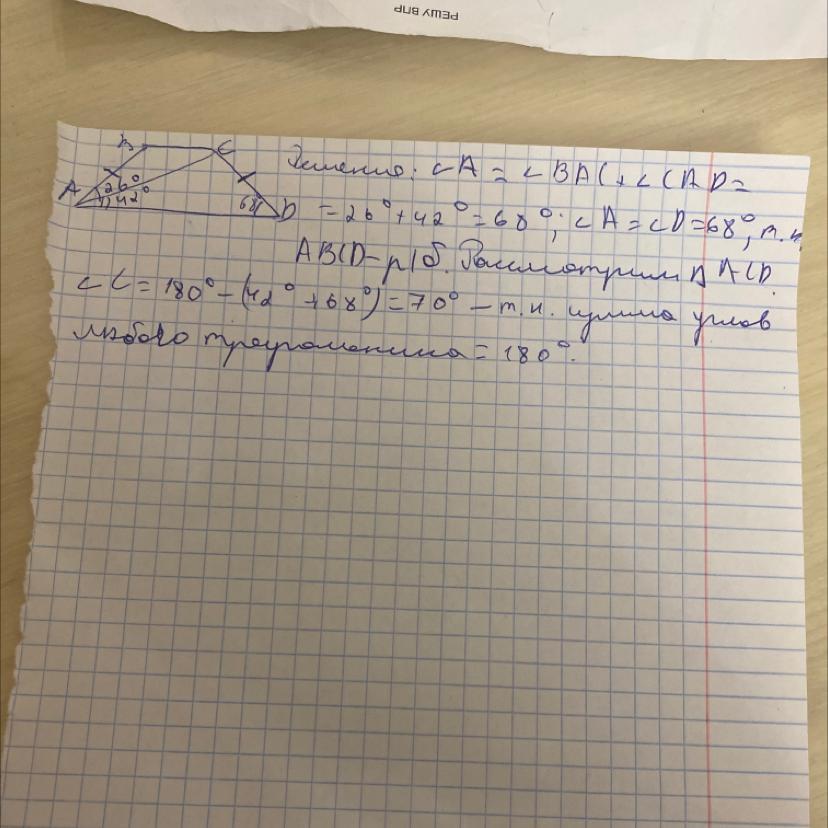 РЕШУ ВПР
B C
A 26° 42° 68° D
Решение: ∠A = ∠BAC + ∠CAD =
= 26° + 42° = 68°; ∠A = ∠D = 68°, т.к.
ABCD - р/б. Рассмотрим △ ACD.
∠C = 180° - (42° + 68°) = 70° - т.к. сумма углов
любого треугольника = 180°.